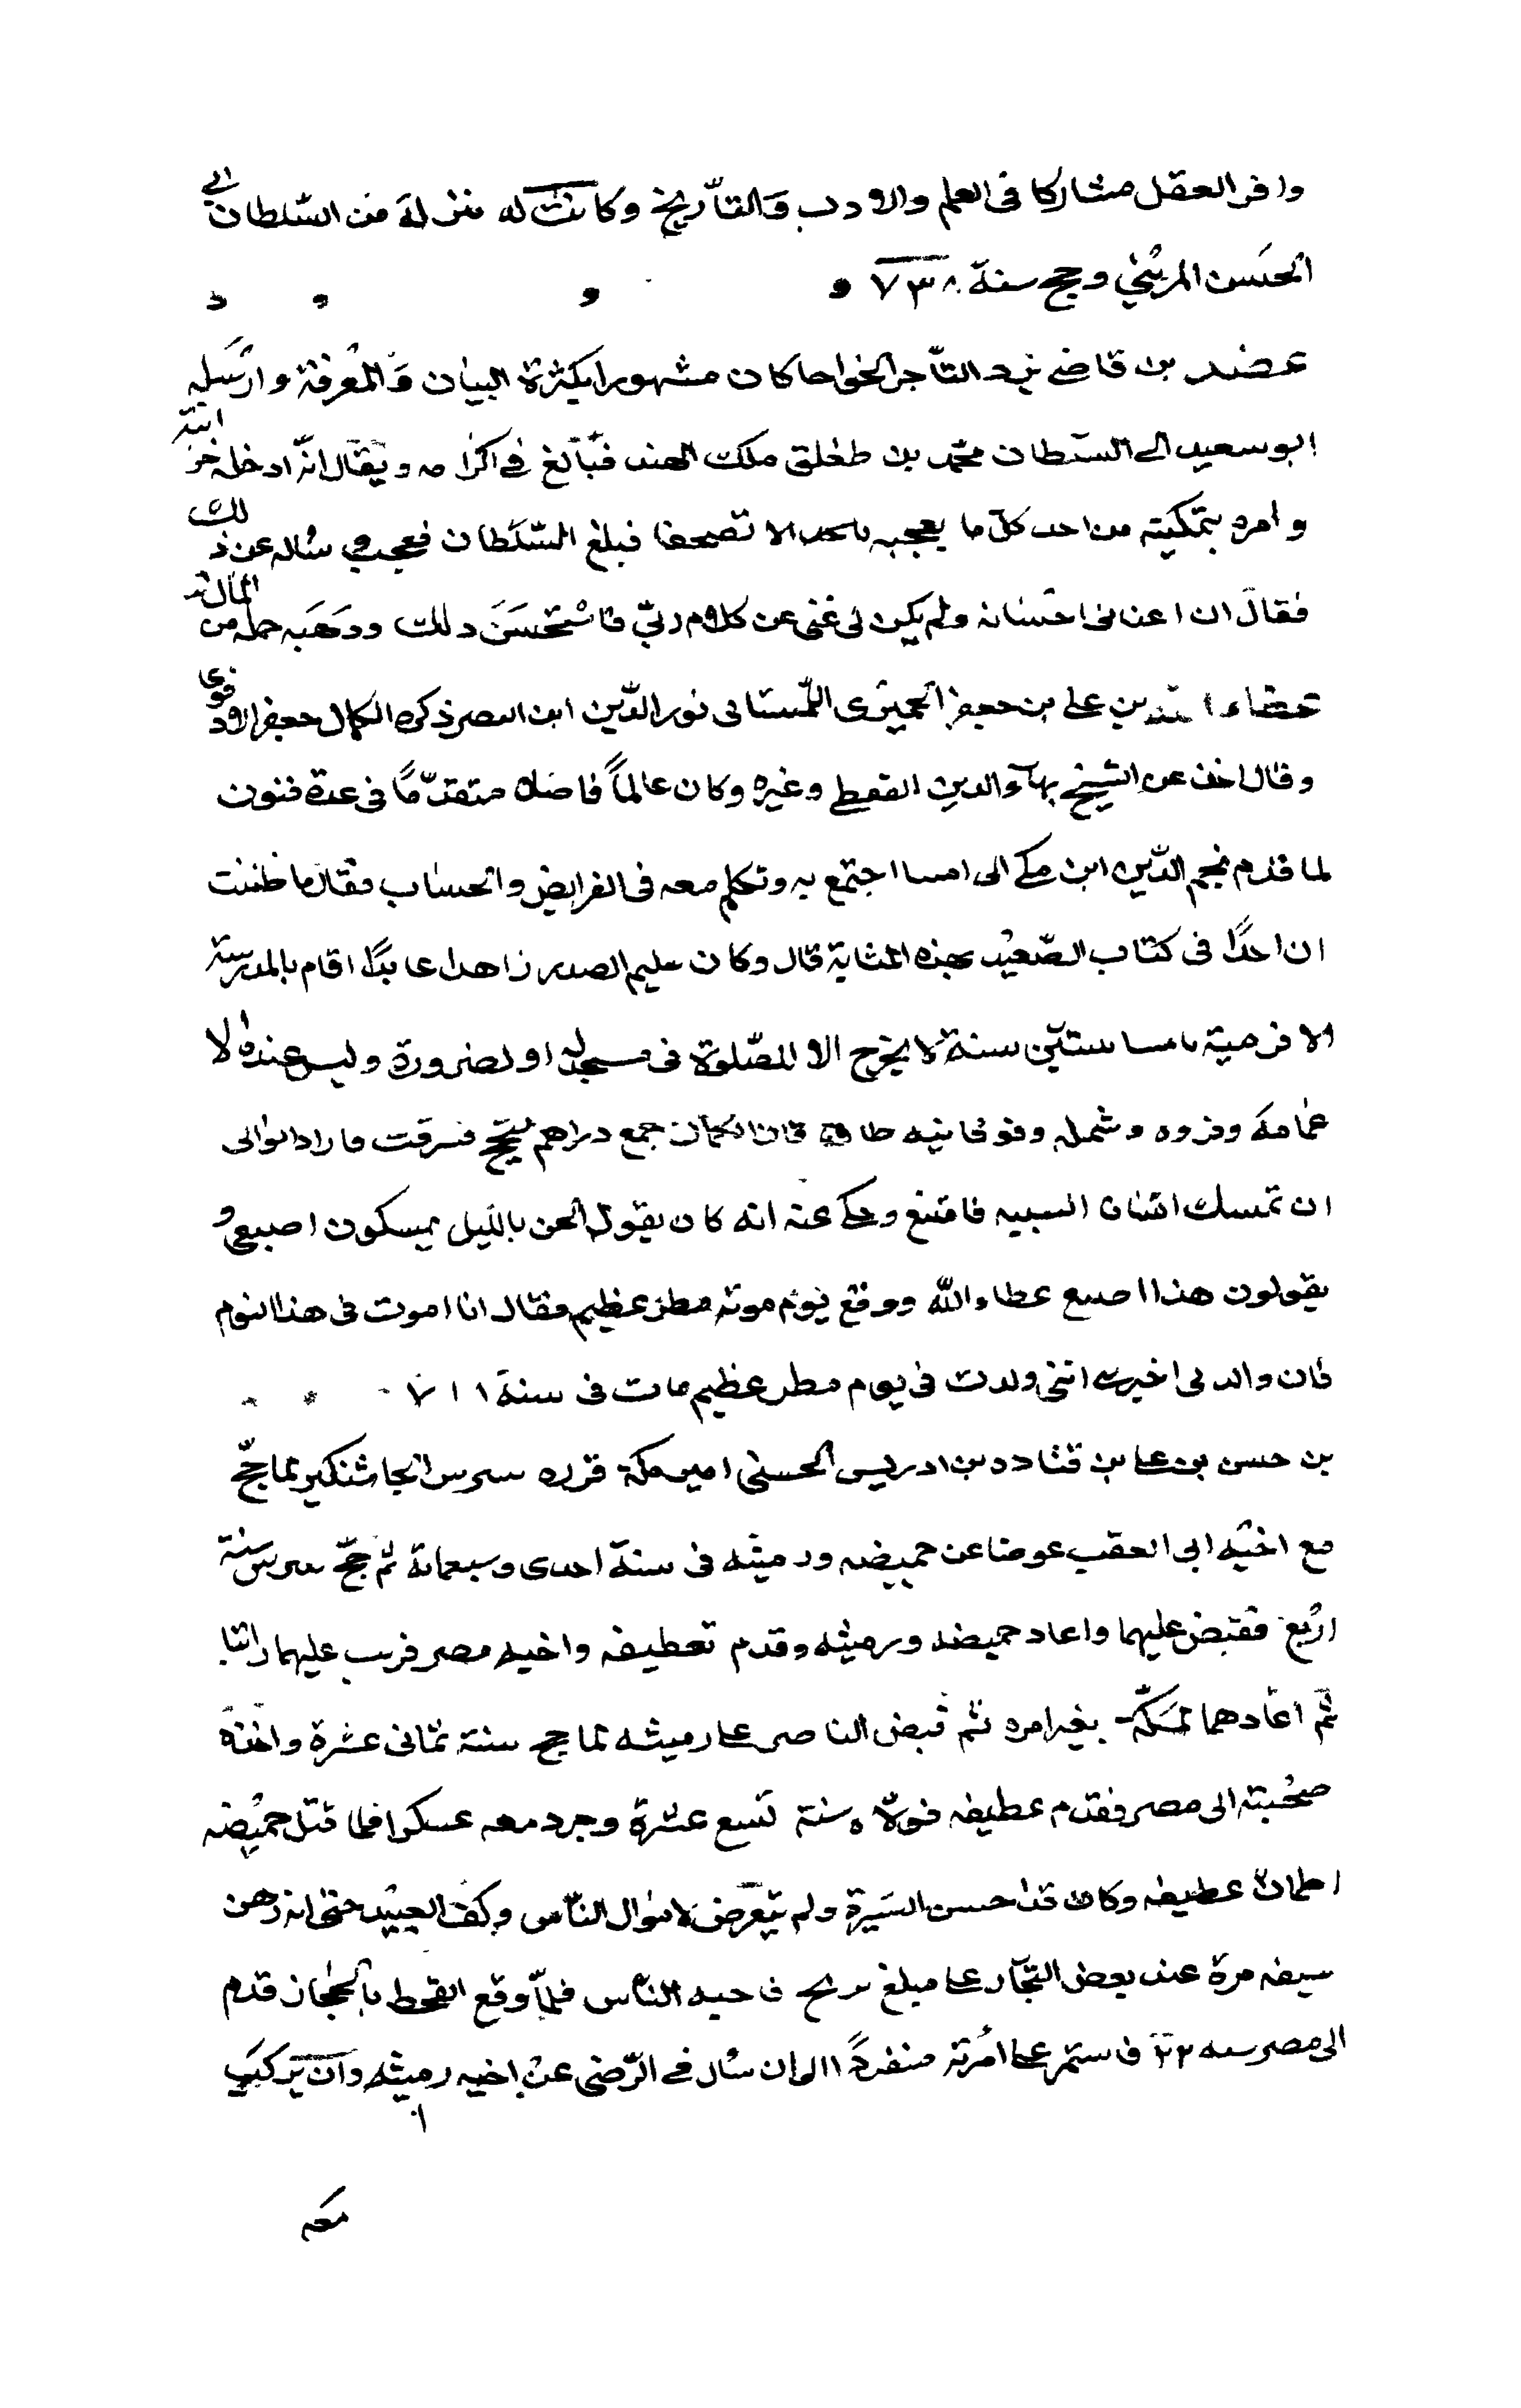 وافر العقل مشاركا فى العلم والادب والتأريخ وكانت له منزلة من السّلطان ابي
الحسن المريني وحج سنة ٧٣٨
عضد بن قاضي يزد التّاجر الخواجا كان مشهورا بكثرة البيان والمعرفة وارسله
ابو سعيد الى السّلطان محمد بن طغلق ملك الهند فبالغ في اكرامه ويقال انّه ادخله خزانته
وامره بتمكينه من اخذ كلّ ما يعجبه الا مصحفا فبلغ السّلطان فعجب وسئاله عن ذلك
فقال ان اغنانى احسانه ولم يكن لى غنى عن كلام ربّي فاستحسن ذلك ووهبه جملة من المال
عطاء الله بن علي بن جعفر الحميرى نور الدّين ابن ذكره الكمال جعفر الادفوى
وقال اخذ عن الشيخ بهآء الدين القفطي وغيره وكان عالماً فاضلا متقدّماً فى عدة فنون
لما قدم نجم الدّين ابن مكي الى اسنا اجتمع به وتكلم معه فى الفرايض والحساب فقال ما ظننت
ان احداً فى كتاب الصّعيد بهذه المثابة قال وكان سليم الصدر زاهدا عابداً اقام بالمدرسة
الافرمية باسنا ستّين سنة لا يخرج الا للصّلوة فى مسجد له او لضرورة وليس عنده الا
عمامة وفروه وشمله وفوقانيه طاق جمع دراهم ليحج فسرقت فاراد الوالى
ان تمسك انسان السببيه فامتنع وحكي عنه انه كان يقول الجن بالليل يمسكون اصبعي و
يقولون هذا اصبع عطاء الله ووقع يوم موته مطر عظيم فقال انا اموت فى هذا اليوم
فان والدلى اخبرت اننى ولدت فى يوم مطر عظيم مات فى سنة ٧١١
بن حسن بن على بن قتاده بن ادريس الحسنى امير مكة قرره بيبرس الجاشنكير لما حجّ
مع اخيه ابى عوضا عن حميضه ورميثه فى سنة احدى وسبعمائة ثم حجّ بيبرس سنة
اربع فقبض عليهما واعاد حميضه ورميثه وقدم عطيفه واخيه مصر فرتب عليهما راتبا
ثم اعادهما لمكة بغير امره ثم قبض الناصر على رميثه لما حج سنة ثمانى عشرة واخذه
صحبته الى مصر فقدم عطيفه فولاه سنة تسع عشرة وجرد معه عسكرا فلما قتل حميضه
اطمان عطيفه وكان حسن السيرة ولم يتعرض لاموال النّاس وكف العبيد حتى انه رهن
سيفه مرة عند بعض التجّار على مبلغ فاحبه النّاس فلمّا وقع القحط بالحجاز قدم
الى مصر سنه ٢٢ فاستمر على امرته منفرداً الى ان سال في الرّضى عن اخيه رميثه وان يتركب
معه